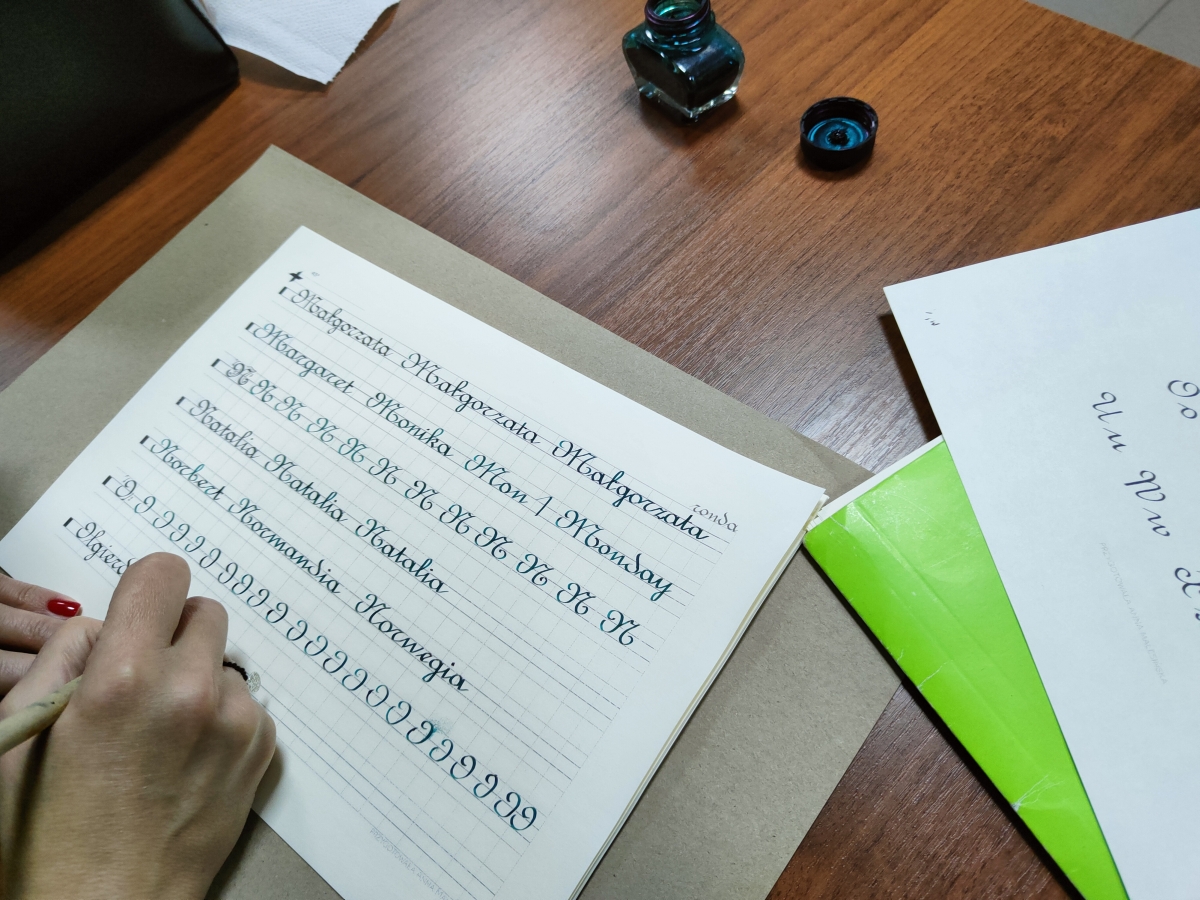 ronda
Małgorzata Małgorzata Małgorzata
Margaret Monika Mon Monday
N N N N N N N N N N N N N
Natalia Natalia Natalia
Norbert Normandia Norwegia
O O O O O O O O O O O O O O O O O
Olgierd
O o
U u W w